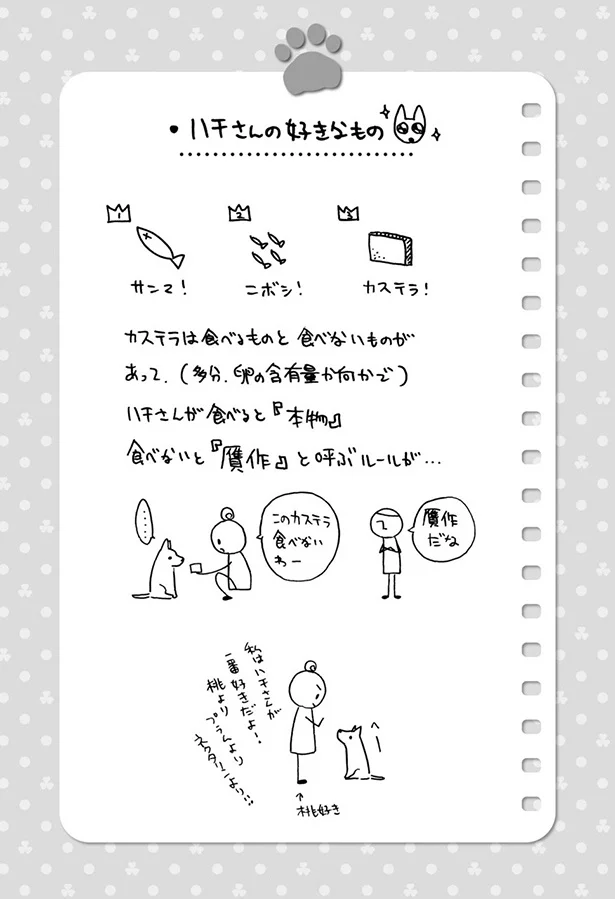 ・ハチさんの好きなもの
1
2
3
サンマ!
ニボシ!
カステラ!
カステラは食べるものと食べないものが
あって、(多分、卵の含有量か何かで)
ハチさんが食べると『本物』
食べないと『贋作』と呼ぶルールが…
……
このカステラ
食べない
わー
贋作
だね
私はハチさんが
一番好きだよ!
桃より
プラムより
ネクタリンより…
↑
桃好き